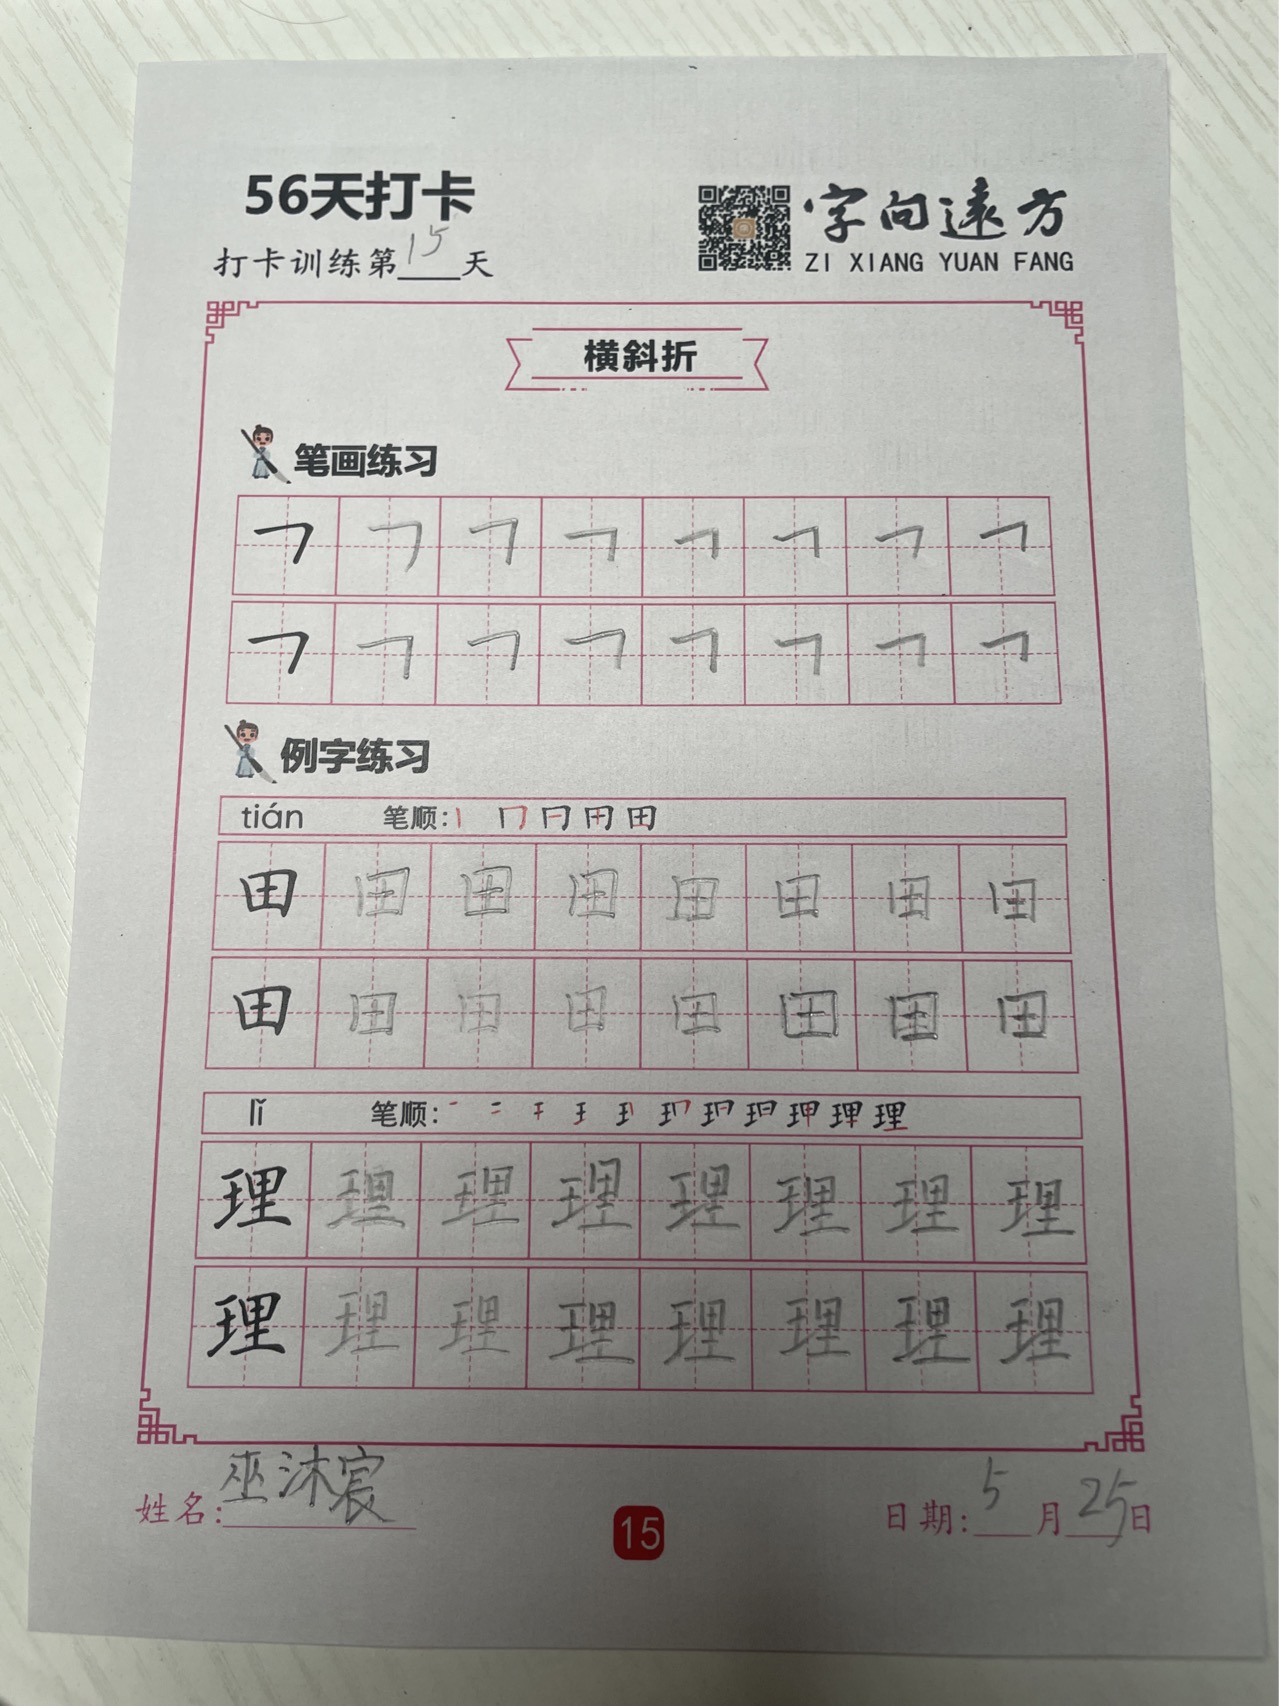 56天打卡
打卡训练第15天
字向远方
ZI XIANG YUAN FANG
横斜折
笔画练习
㇕ ㇕ ㇕ ㇕ ㇕ ㇕ ㇕ ㇕
㇕ ㇕ ㇕ ㇕ ㇕ ㇕ ㇕ ㇕
例字练习
tián 笔顺: 丨 冂 冃 田 田
田 田 田 田 田 田 田 田
田 田 田 田 田 田 田 田
lǐ 笔顺:
理 理 理 理 理 理 理 理
理 理 理 理 理 理 理 理
姓名: 巫沐宸
15
日期: 5月25日